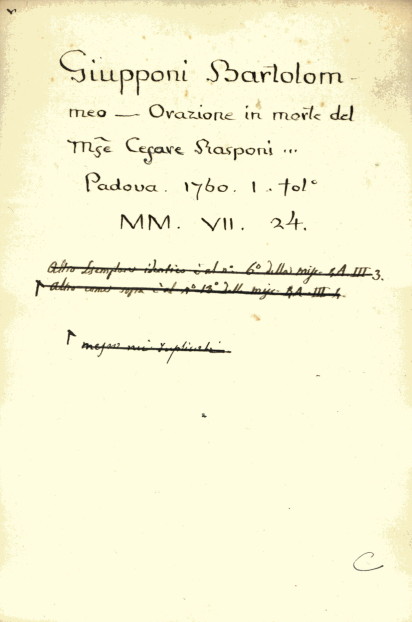 Giupponi Bartolom-
meo — Orazione in morte del
Mse Cesare Rasponi ...
Padova. 1760. 1.. fol°
MM. VII. 24.
Altro Esemplare identico è al n° 6° della misc. 4A III 3.
Altro come sopra è al n° 13° della misc. 4A III 4.
messo nei duplicati
C